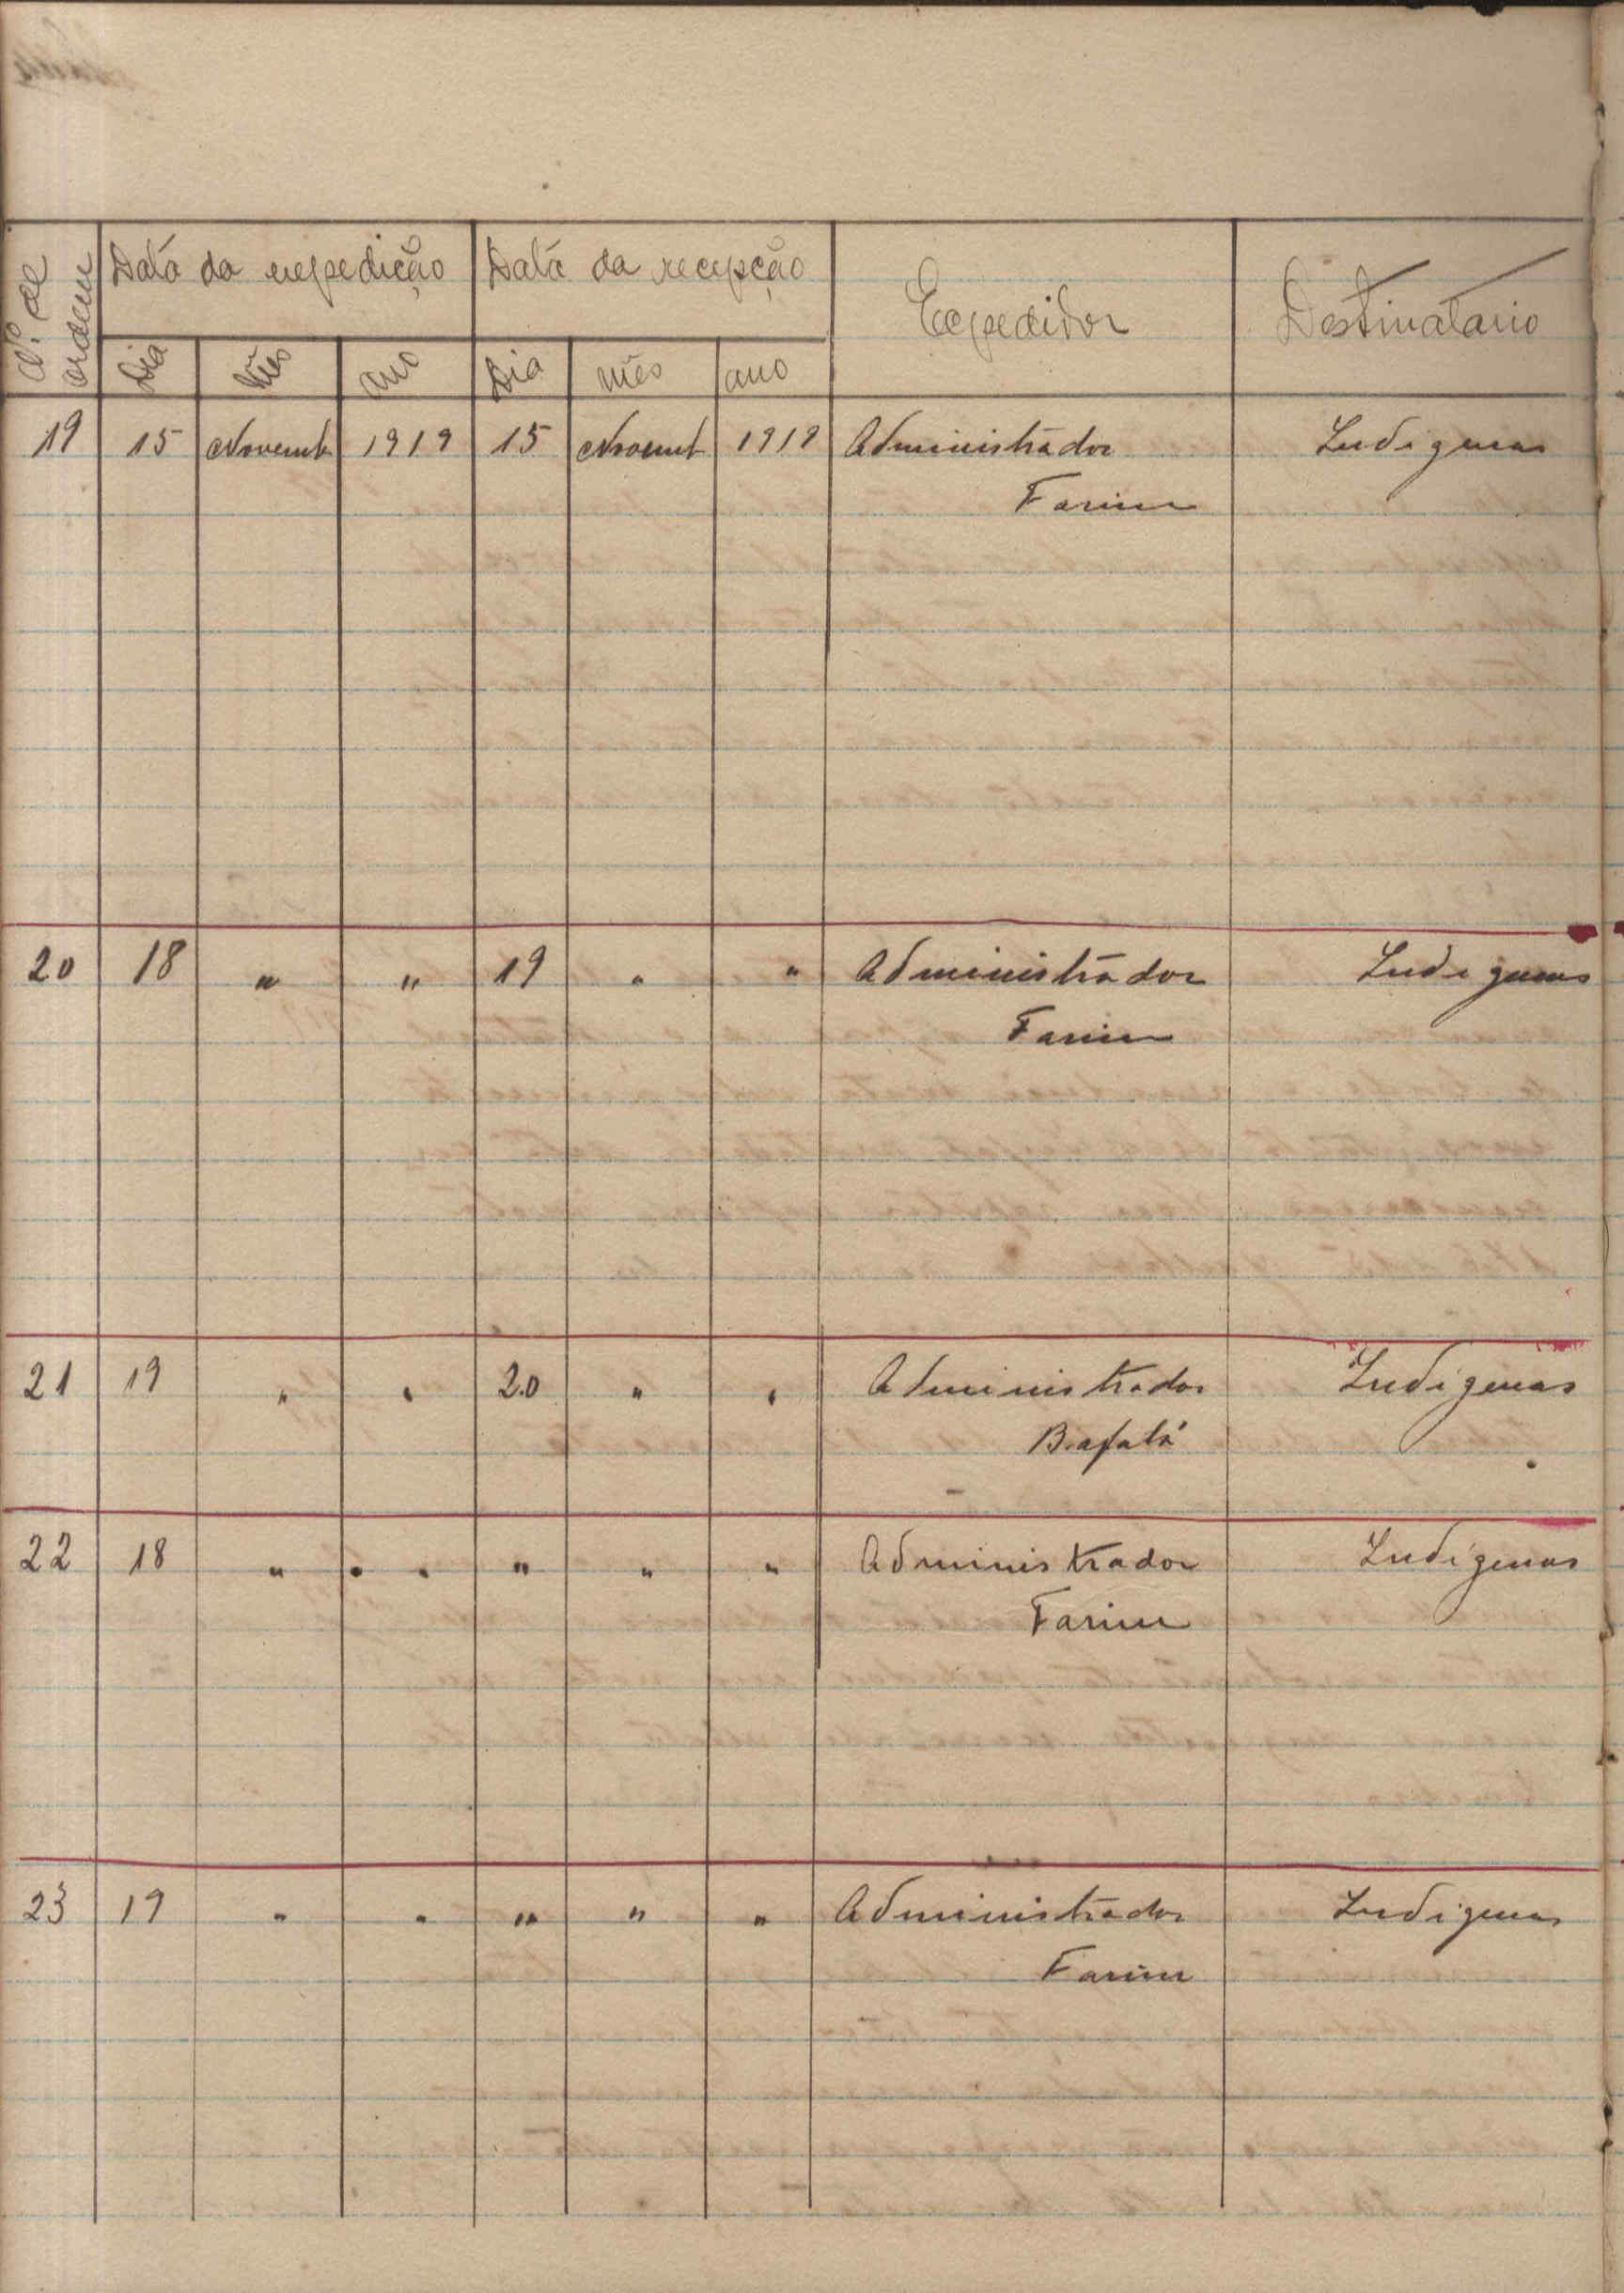 Nº de ordem | Data da expedição | Data da recepção | Expedidor | Destinatario
Dia | Mês | ano | Dia | mês | ano
19 | 15 | Novemb | 1919 | 15 | Novemb | 1919 | Administrador | Indigenas
Farim
20 | 18 | " | " | 19 | " | " | Administrador | Indigenas
Farim
21 | 19 | " | " | 20 | " | " | Administrador | Indigenas
Bafatá
22 | 18 | " | " | " | " | " | Administrador | Indigenas
Farim
23 | 19 | " | " | " | " | " | Administrador | Indigenas
Farim